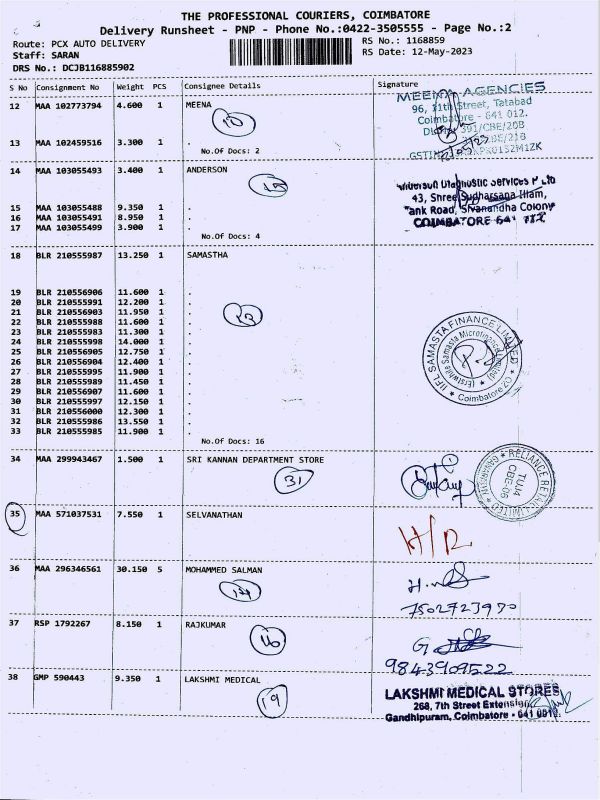 THE PROFESSIONAL COURIERS, COIMBATORE
Delivery Runsheet - PNP - Phone No.:0422-3505555 - Page No.:2
Route: PCX AUTO DELIVERY RS No.: 1168859
Staff: SARAN RS Date: 12-May-2023
DRS No.: DCJB116885902
S No Consignment No Weight PCS Consignee Details Signature
12 MAA 102773794 4.600 1 MEENA
MEENA AGENCIES
96, 11th Street, Tatabad
Coimbatore - 641 012.
391/CBE/20B
13 MAA 102459516 3.300 1 .
No.Of Docs: 2
14 MAA 103055493 3.400 1 ANDERSON
Anderson Diagnostic Services P Ltd
43, Shree Sudharsana Illam,
Tank Road, Sivanandha Colony
COIMBATORE
15 MAA 103055488 9.350 1 .
16 MAA 103055491 8.950 1 .
17 MAA 103055499 3.900 1 .
No.Of Docs: 4
18 BLR 210555987 13.250 1 SAMASTHA
19 BLR 210556906 11.600 1 .
20 BLR 210555991 12.200 1 .
21 BLR 210556903 11.950 1 .
22 BLR 210555988 11.600 1 .
23 BLR 210555983 11.300 1 .
24 BLR 210555998 14.000 1 .
25 BLR 210556905 12.750 1 .
26 BLR 210556904 12.400 1 .
27 BLR 210555995 11.900 1 .
28 BLR 210555989 11.450 1 .
29 BLR 210556907 11.600 1 .
30 BLR 210555997 12.150 1 .
31 BLR 210556000 12.300 1 .
32 BLR 210555986 13.550 1 .
33 BLR 210555985 11.900 1 .
No.Of Docs: 16
IIFL SAMASTA FINANCE LIMITED
(Erstwhile Samasta Microfinance Limited)
Coimbatore CO
34 MAA 299943467 1.500 1 SRI KANNAN DEPARTMENT STORE
31
RELIANCE RETAIL LIMITED
TUJ4
CBE-06
35 MAA 571037531 7.550 1 SELVANATHAN
H/R
36 MAA 296346561 30.150 5 MOHAMMED SALMAN
7502723970
37 RSP 1792267 8.150 1 RAJKUMAR
16
9843909522
38 GMP 590443 9.350 1 LAKSHMI MEDICAL
19
LAKSHMI MEDICAL STORES
268, 7th Street Extension
Gandhipuram, Coimbatore - 641 0012.